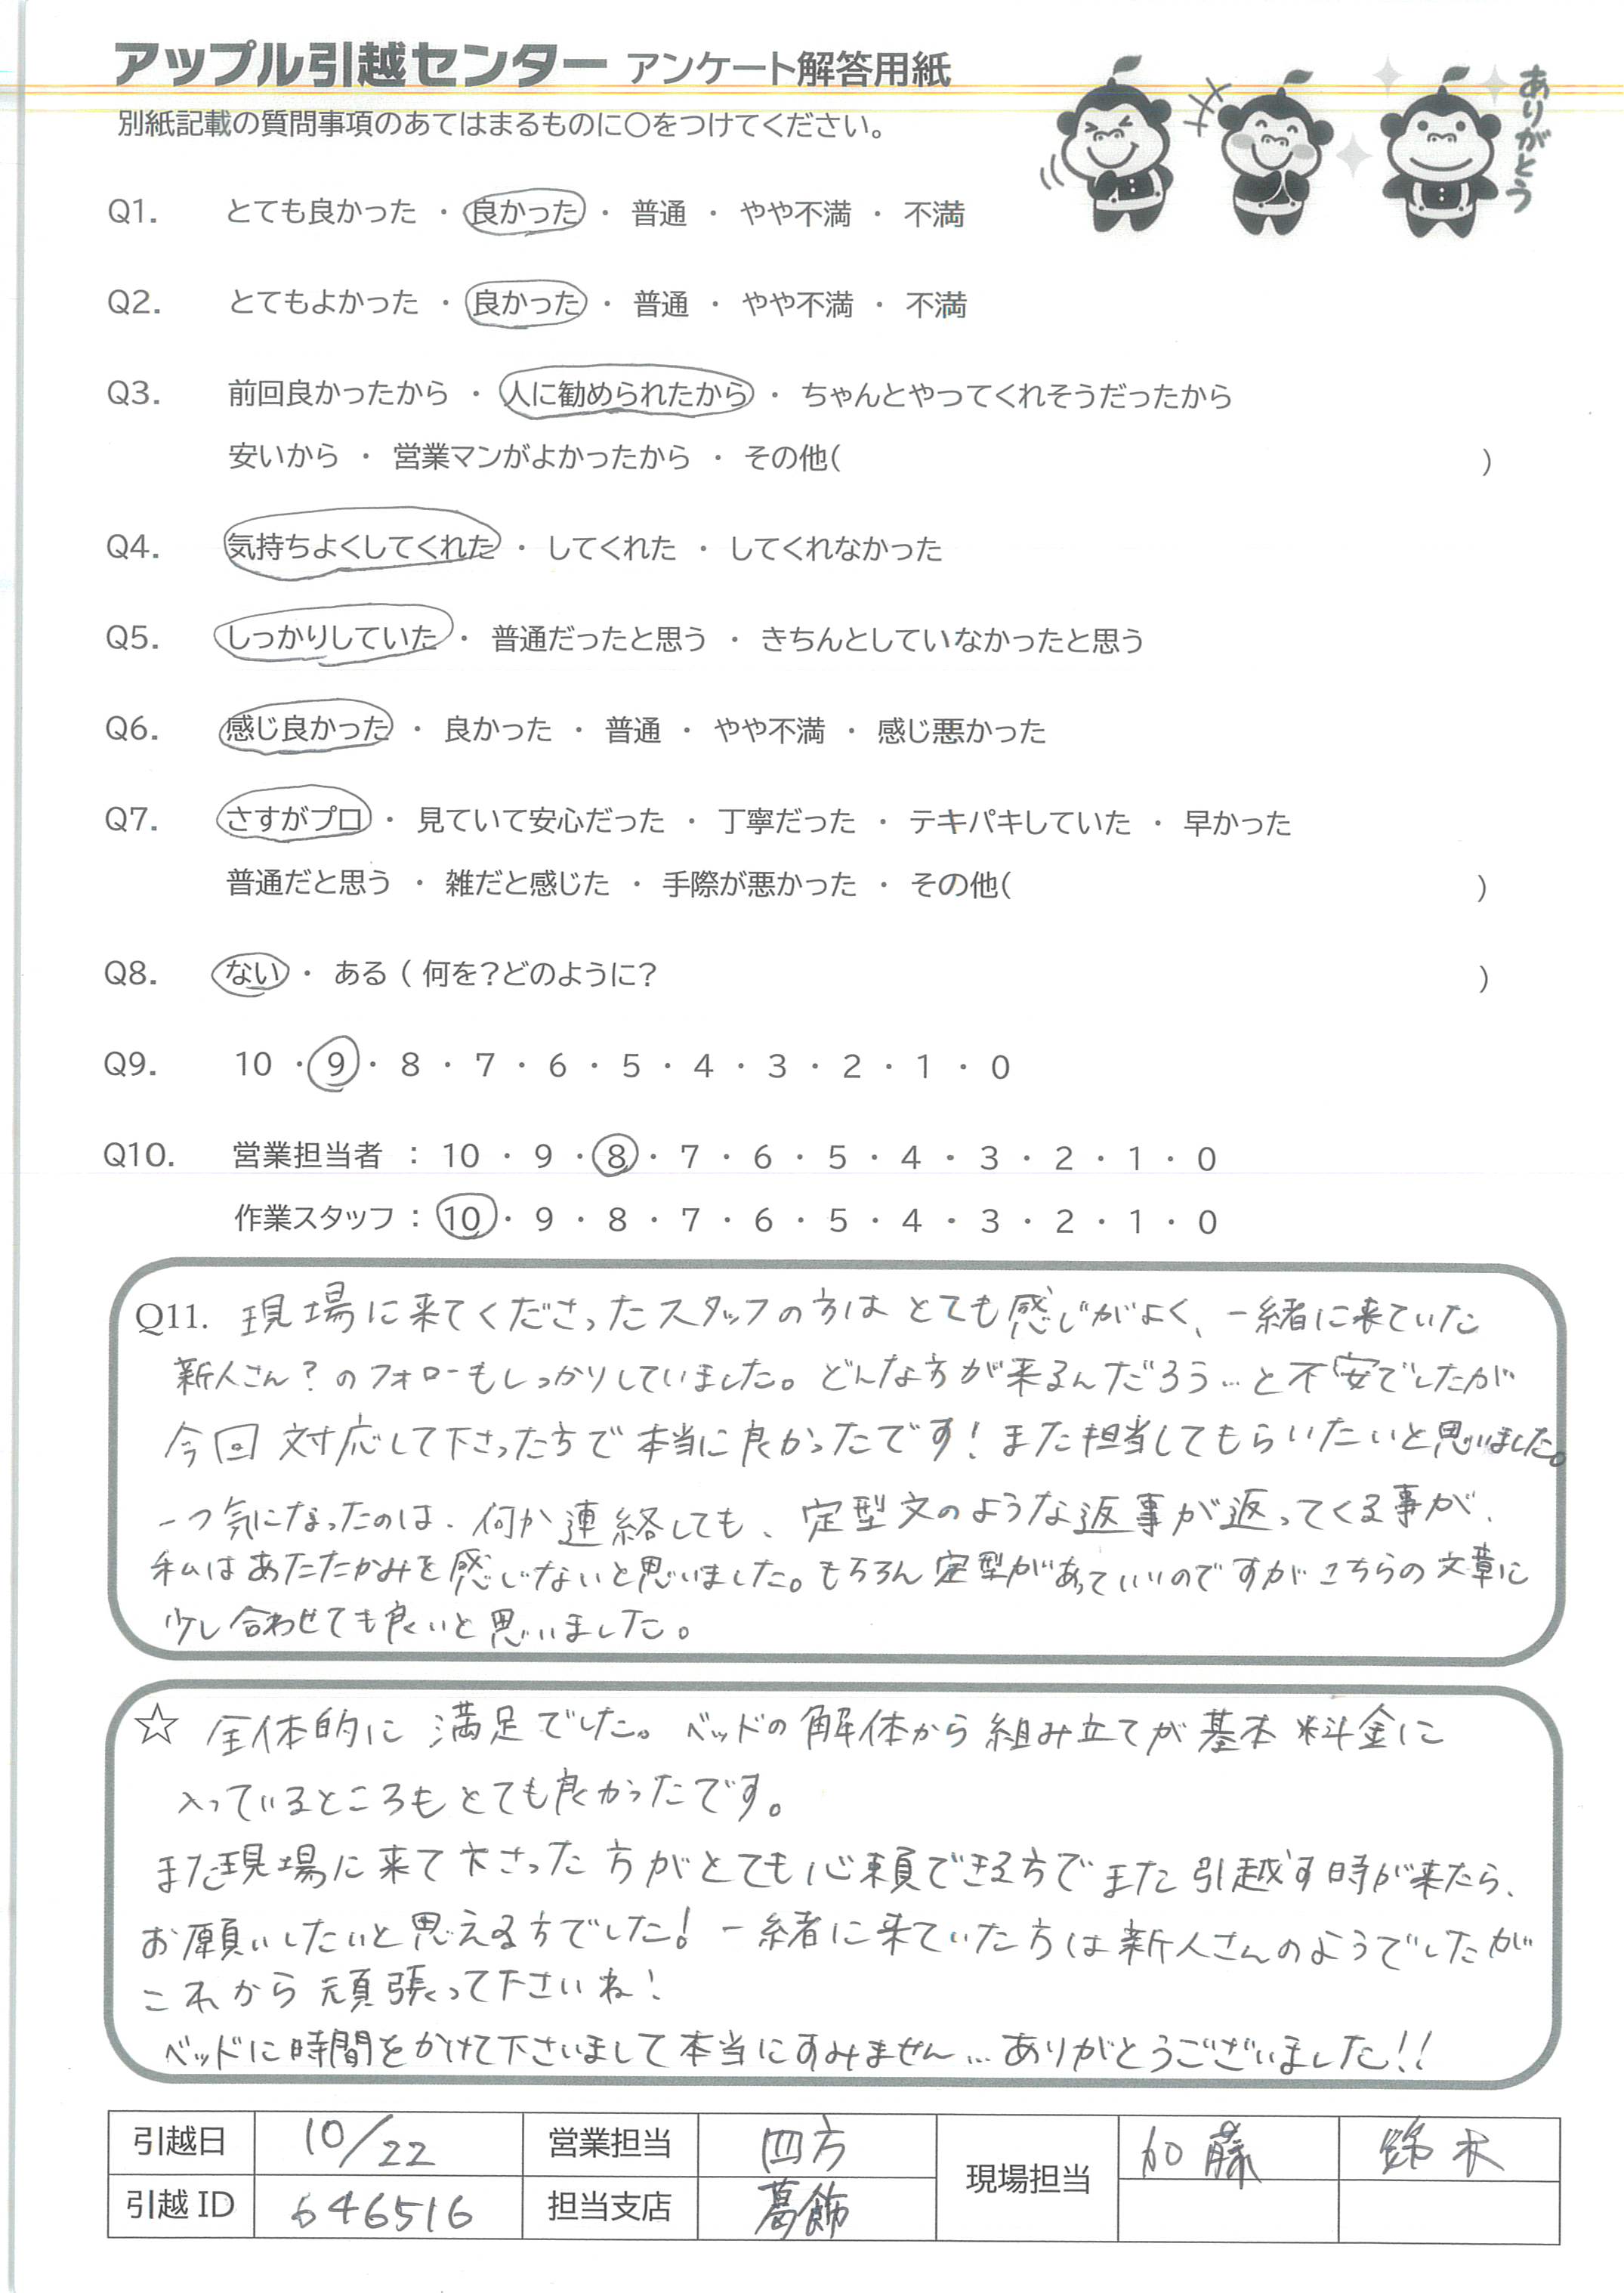 アップル引越センター アンケート解答用紙
別紙記載の質問事項のあてはまるものに○をつけてください。
ありがとう
Q1. とても良かった ・ 良かった ・ 普通 ・ やや不満 ・ 不満
Q2. とてもよかった ・ 良かった ・ 普通 ・ やや不満 ・ 不満
Q3. 前回良かったから ・ 人に勧められたから ・ ちゃんとやってくれそうだったから
安いから ・ 営業マンがよかったから ・ その他( )
Q4. 気持ちよくしてくれた ・ してくれた ・ してくれなかった
Q5. しっかりしていた ・ 普通だったと思う ・ きちんとしていなかったと思う
Q6. 感じ良かった ・ 良かった ・ 普通 ・ やや不満 ・ 感じ悪かった
Q7. さすがプロ ・ 見ていて安心だった ・ 丁寧だった ・ テキパキしていた ・ 早かった
普通だと思う ・ 雑だと感じた ・ 手際が悪かった ・ その他( )
Q8. ない ・ ある ( 何を?どのように? )
Q9. 10 ・ 9 ・ 8 ・ 7 ・ 6 ・ 5 ・ 4 ・ 3 ・ 2 ・ 1 ・ 0
Q10. 営業担当者 : 10 ・ 9 ・ 8 ・ 7 ・ 6 ・ 5 ・ 4 ・ 3 ・ 2 ・ 1 ・ 0
作業スタッフ : 10 ・ 9 ・ 8 ・ 7 ・ 6 ・ 5 ・ 4 ・ 3 ・ 2 ・ 1 ・ 0
Q11. 現場に来てくださったスタッフの方は とても感じがよく、一緒に来ていた
新人さん?のフォローもしっかりしていました。どんな方が来るんだろう…と不安でしたが
今回 対応して下さった方で本当に良かったです! また担当してもらいたいと思いました。
一つ気になったのは、何か連絡しても、定型文のような返事が返ってくる事が、
私はあたたかみを感じないと思いました。もちろん定型があっていいのですがこちらの文章に
少し合わせても良いと思いました。
☆ 全体的に 満足でした。ベッドの解体から組み立てが基本料金に
入っているところもとても良かったです。
また現場に来て下さった方がとても心頼できる方でまた引越す時が来たら、
お願いしたいと思える方でした! 一緒に来ていた方は新人さんのようでしたが
これから頑張って下さいね!
ベッドに時間をかけて下さいまして本当にすみません… ありがとうございました!!
引越日 10/22 営業担当 四方 現場担当 加藤 鈴木
引越ID 646516 担当支店 葛飾